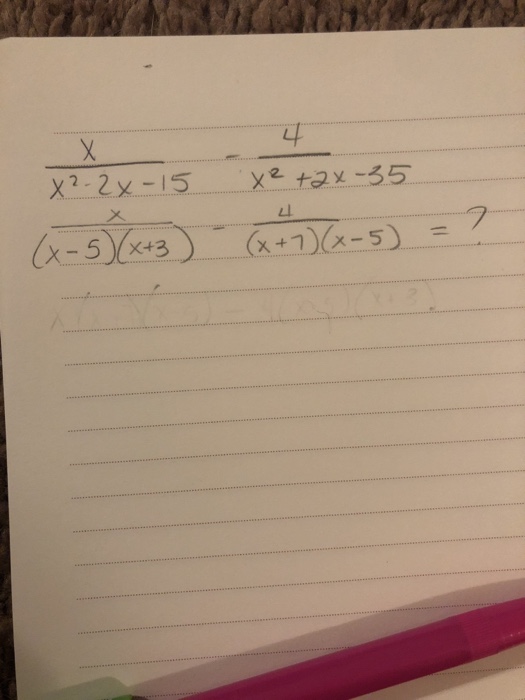 x/(x²-2x-15) - 4/(x²+2x-35)
x/((x-5)(x+3)) - 4/((x+7)(x-5)) = ?